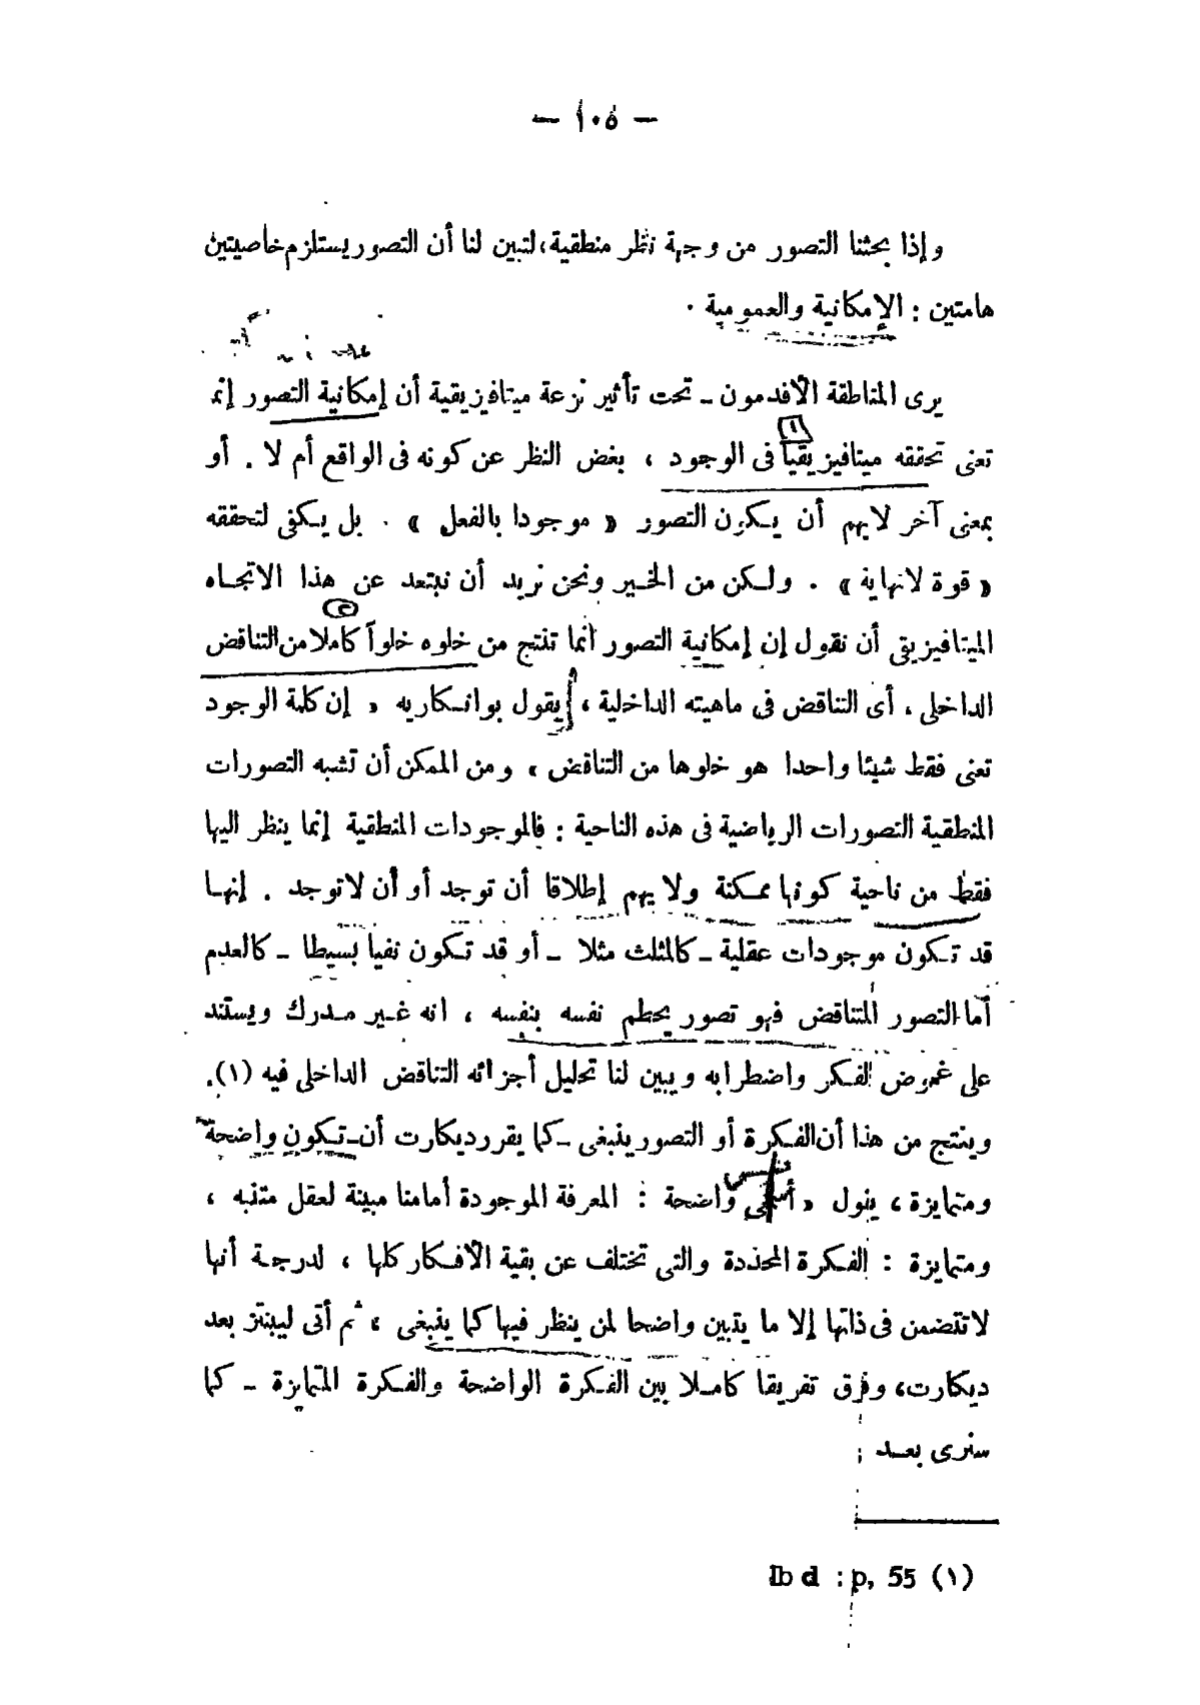 — ١٠٥ —
وإذا بحثنا التصور من وجهة نظر منطقية، لتبين لنا أن التصور يستلزم خاصيتين
هامتين : الإمكانية والعمومية .
يرى المناطقة الأقدمون ـ تحت تأثير نزعة ميتافيزيقية أن إمكانية التصور إنما
تعنى تحققه ميتافيزيقياً فى الوجود ، بغض النظر عن كونه فى الواقع أم لا . أو
بمعنى آخر لايهم أن يكون التصور « موجودا بالفعل » . بل يكفى لتحققه
« قوة لانهاية » . ولكن من الخير ونحن نريد أن نبتعد عن هذا الاتجاه
الميتافيزيقى أن نقول إن إمكانية التصور انما تنتج من خلوه خلواً كاملا من التناقض
الداخلى ، أى التناقض فى ماهيته الداخلية ، يقول بوانكاريه « إن كلمة الوجود
تعنى فقط شيئا واحدا هو خلوها من التناقض ، ومن الممكن أن تشبه التصورات
المنطقية التصورات الرياضية فى هذه الناحية : فالموجودات المنطقية إنما ينظر اليها
فقط من ناحية كونها ممكنة ولا يهم إطلاقا أن توجد أو أن لاتوجد . إنها
قد تكون موجودات عقلية ـ كالمثلث مثلا ـ أو قد تكون نفياً بسيطا ـ كالعدم
أما التصور المتناقض فهو تصور يحطم نفسه بنفسه ، انه غير مدرك ويستند
على غموض الفكر واضطرابه ويبين لنا تحليل أجزائه التناقض الداخلى فيه (١).
وينتج من هذا أن الفكرة أو التصور ينبغى ـ كما يقرر ديكارت أن ـ تكون واضحة
ومتمايزة ، يقول « واضحة : المعرفة الموجودة أمامنا مبينة لعقل متنبه ،
ومتمايزة : الفكرة المحددة والتى تختلف عن بقية الأفكار كلها ، لدرجة أنها
لاتتضمن فى ذاتها إلا ما يتبين واضحا لمن ينظر فيها كما ينبغى ، ثم أتى ليبنتز بعد
ديكارت، وفرق تفريقا كاملا بين الفكرة الواضحة والفكرة المتمايزة ـ كما
سنرى بعد :
Ibd : p, 55 (١)